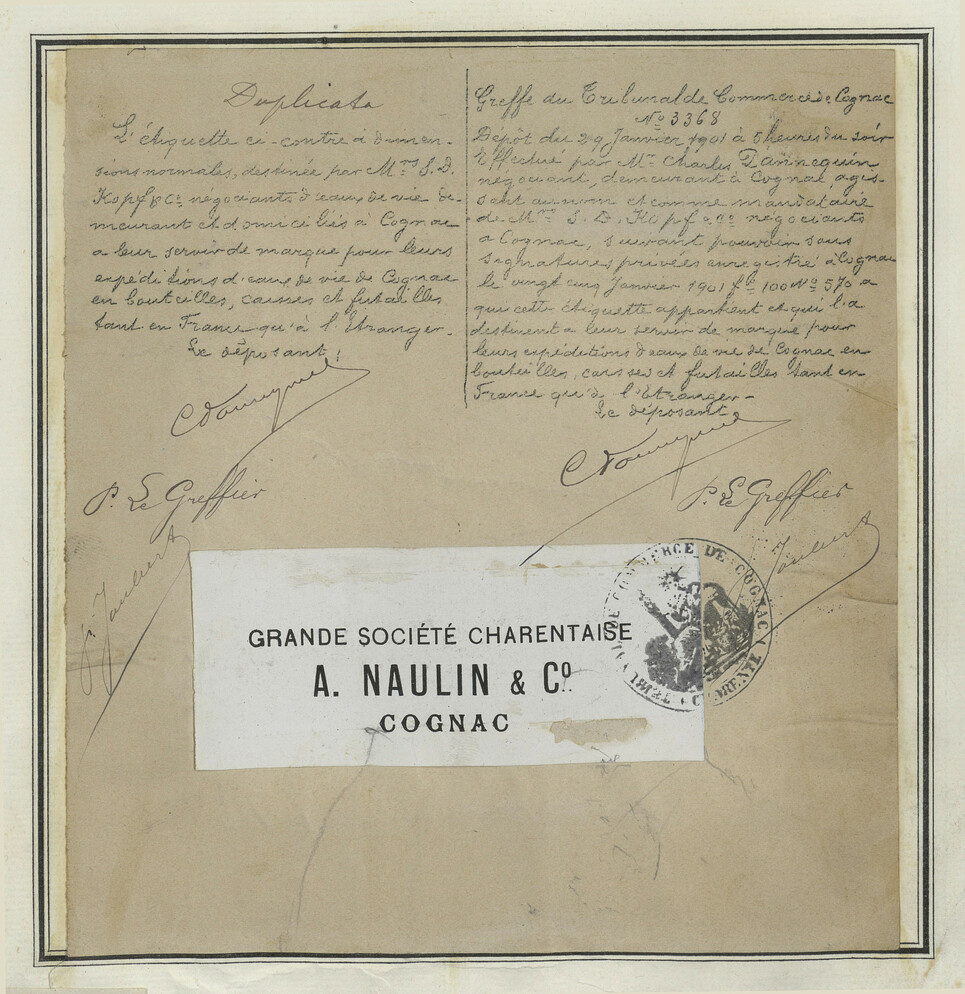 Duplicata
L'étiquette ci-contre à dimen-
sions normales, destinée par Mrs S. D.
Kopf & Co négociants d'eaux de vie de-
meurant et domiciliés à Cognac
a leur servir de marque pour leurs
expéditions d'eaux de vie de Cognac
en bouteilles, caisses et futailles
tant en France qu'à l'Etranger.
Le déposant,
P. Le Greffier
Greffe du Tribunal de Commerce de Cognac
No 3368
Dépôt du 29 Janvier 1901 à 5 heures du soir
Effectué par Mr Charles Dannequin
négociant, demeurant à Cognac, agis-
sant au nom et comme mandataire
de Mrs S. D. Kopf & Co négociants
a Cognac, suivant pouvoir sous
signatures privées enregistré à Cognac
le vingt cinq Janvier 1901 fo 100 No 570 a
qui cette étiquette appartient et qui l'a
destinent a leur servir de marque pour
leurs expéditions d'eaux de vie de Cognac en
bouteilles, caisses et futailles tant en
France qu'à l'Etranger-
Le déposant
P. Le Greffier
GRANDE SOCIÉTÉ CHARENTAISE
A. NAULIN & Co.
COGNAC
COMMERCE DE COGNAC